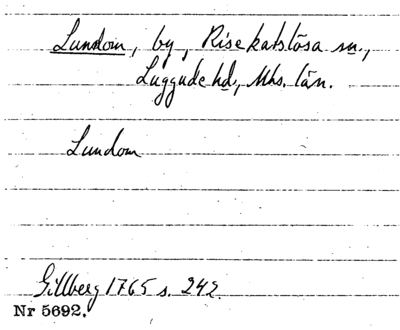 Lundom, by, Risekatslösa sn.,
Luggude hd., Mhs. län.
Lundom
Gillberg 1765 s. 242.
Nr 5692.